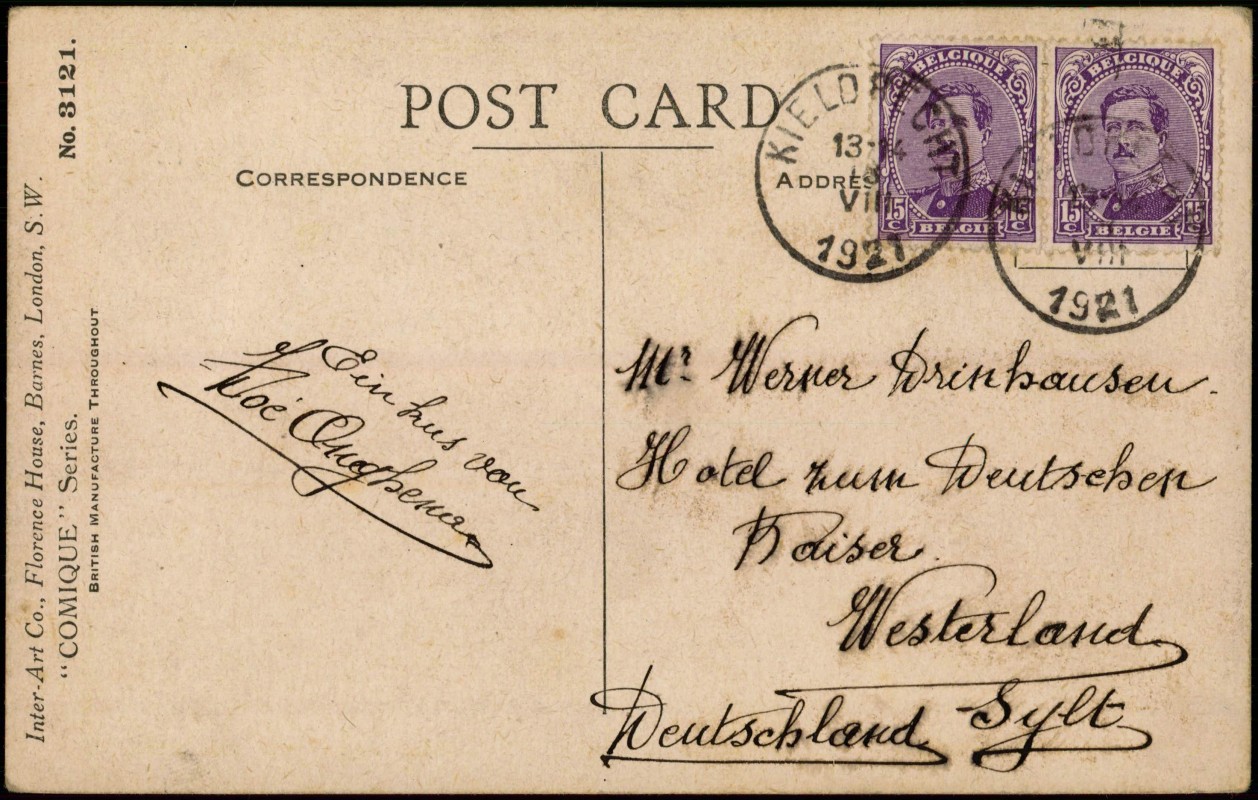 POST CARD
CORRESPONDENCE
ADDRES
No. 3121.
Inter-Art Co., Florence House, Barnes, London, S.W.
"COMIQUE" Series.
BRITISH MANUFACTURE THROUGHOUT
BELGIQUE
15 C
15 C
BELGIE
BELGIQUE
15 C
15 C
BELGIE
KIELDRECHT
13-14
VIII
1921
VIII
1921
Ein kus von
Mr. Werner Drinhausen.
Hotel zum Deutschen
Kaiser.
Westerland
Sylt
Deutschland